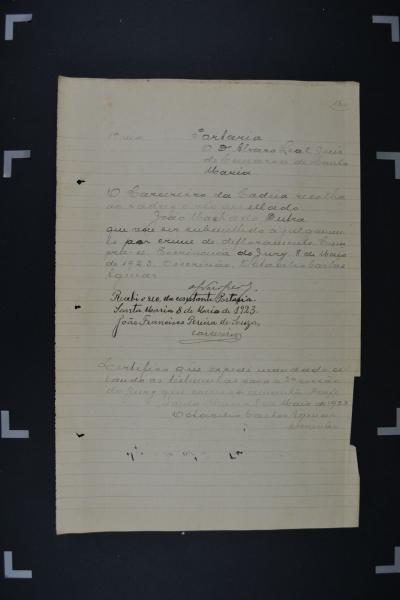 1ª via Portaria
O Dr Alvaro Leal, Juiz
de Comarca de Santa
Maria
O Carcereiro da Cadea recolha
ao xadrez o réu
João Machado Dutra
que vae ser submettido a julgamen-
to por crime de defloramento. Cum-
pra-se. do Jury, 8 de Maio
de 1923. Escrivão, Octacilio Carlos
Aguiar
Recebi o reo, da constante Portaria.
Santa Maria 8 de Maio de 1923.
João Francisco Pereira de Souza.
carcereiro
Certifico que expedi mandado ci-
tando as testemunhas para a 2ª sessão
do Jury que
Santa Maria 8 de Maio de 1923
Octacilio Carlos Aguiar
escrivão